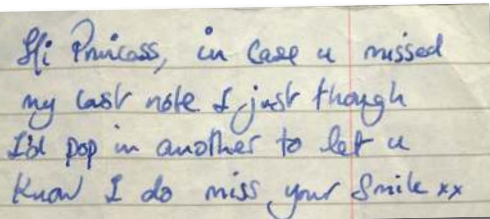 Hi Princass, in Case u missed
my last note I just though
I'd pop in another to let u
Know I do miss your Smile xx